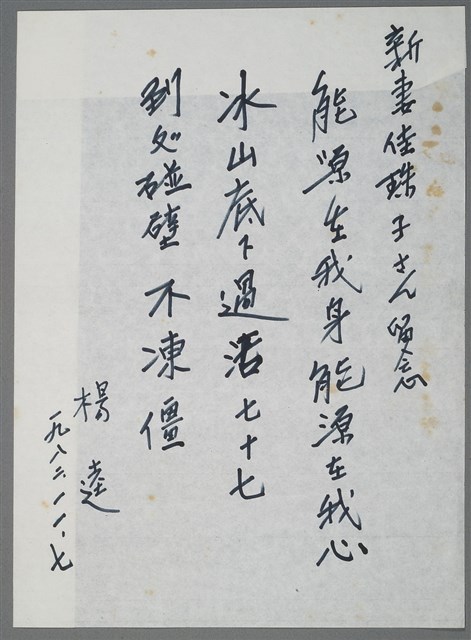 新妻佳珠子さん留念
能源在我身能源在我心
冰山底下過活七十七
到処碰壁不凍僵
楊逵
一九八二、一一、七